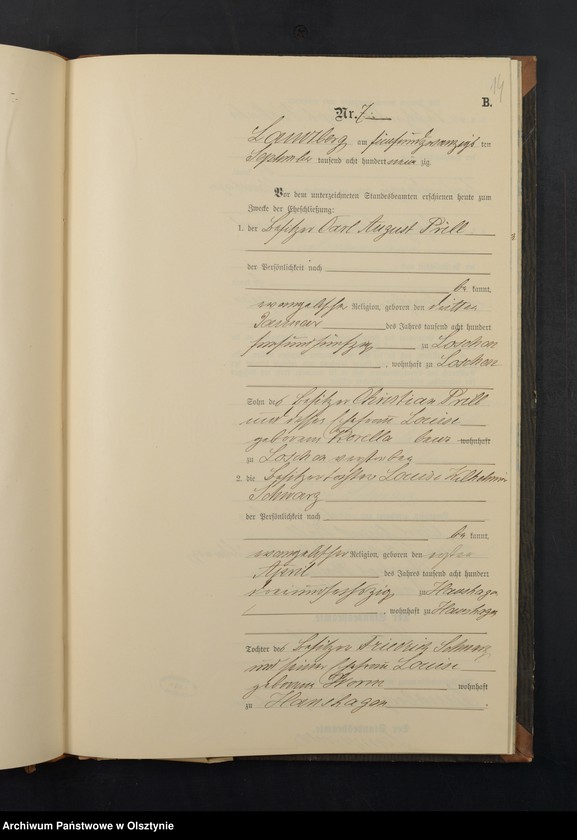 14
B.
Nr. 7.
Landsberg, am fünfundzwanzigsten
September tausend acht hundert neunzig.
Vor dem unterzeichneten Standesbeamten erschienen heute zum
Zwecke der Eheschließung:
1. der Besitzer Carl August Prill
der Persönlichkeit nach
be kannt,
evangelischer Religion, geboren den dritten
Januar des Jahres tausend acht hundert
fünfundfünfzig zu Loschen
, wohnhaft zu Loschen
Sohn des Besitzer Christian Prill
und dessen Ehefrau Louise
geborene wohnhaft
zu Loschen verstorben
2. die Besitzertochter Louise Wilhelmine
Schwarz
der Persönlichkeit nach
be kannt,
evangelischer Religion, geboren den ersten
April des Jahres tausend acht hundert
dreiundsechzig zu Hanshagen
, wohnhaft zu Hanshagen
Tochter des Besitzer Friedrich Schwarz
und seiner Ehefrau Louise
geborene Worm wohnhaft
zu Hanshagen .
Archiwum Państwowe w Olsztynie